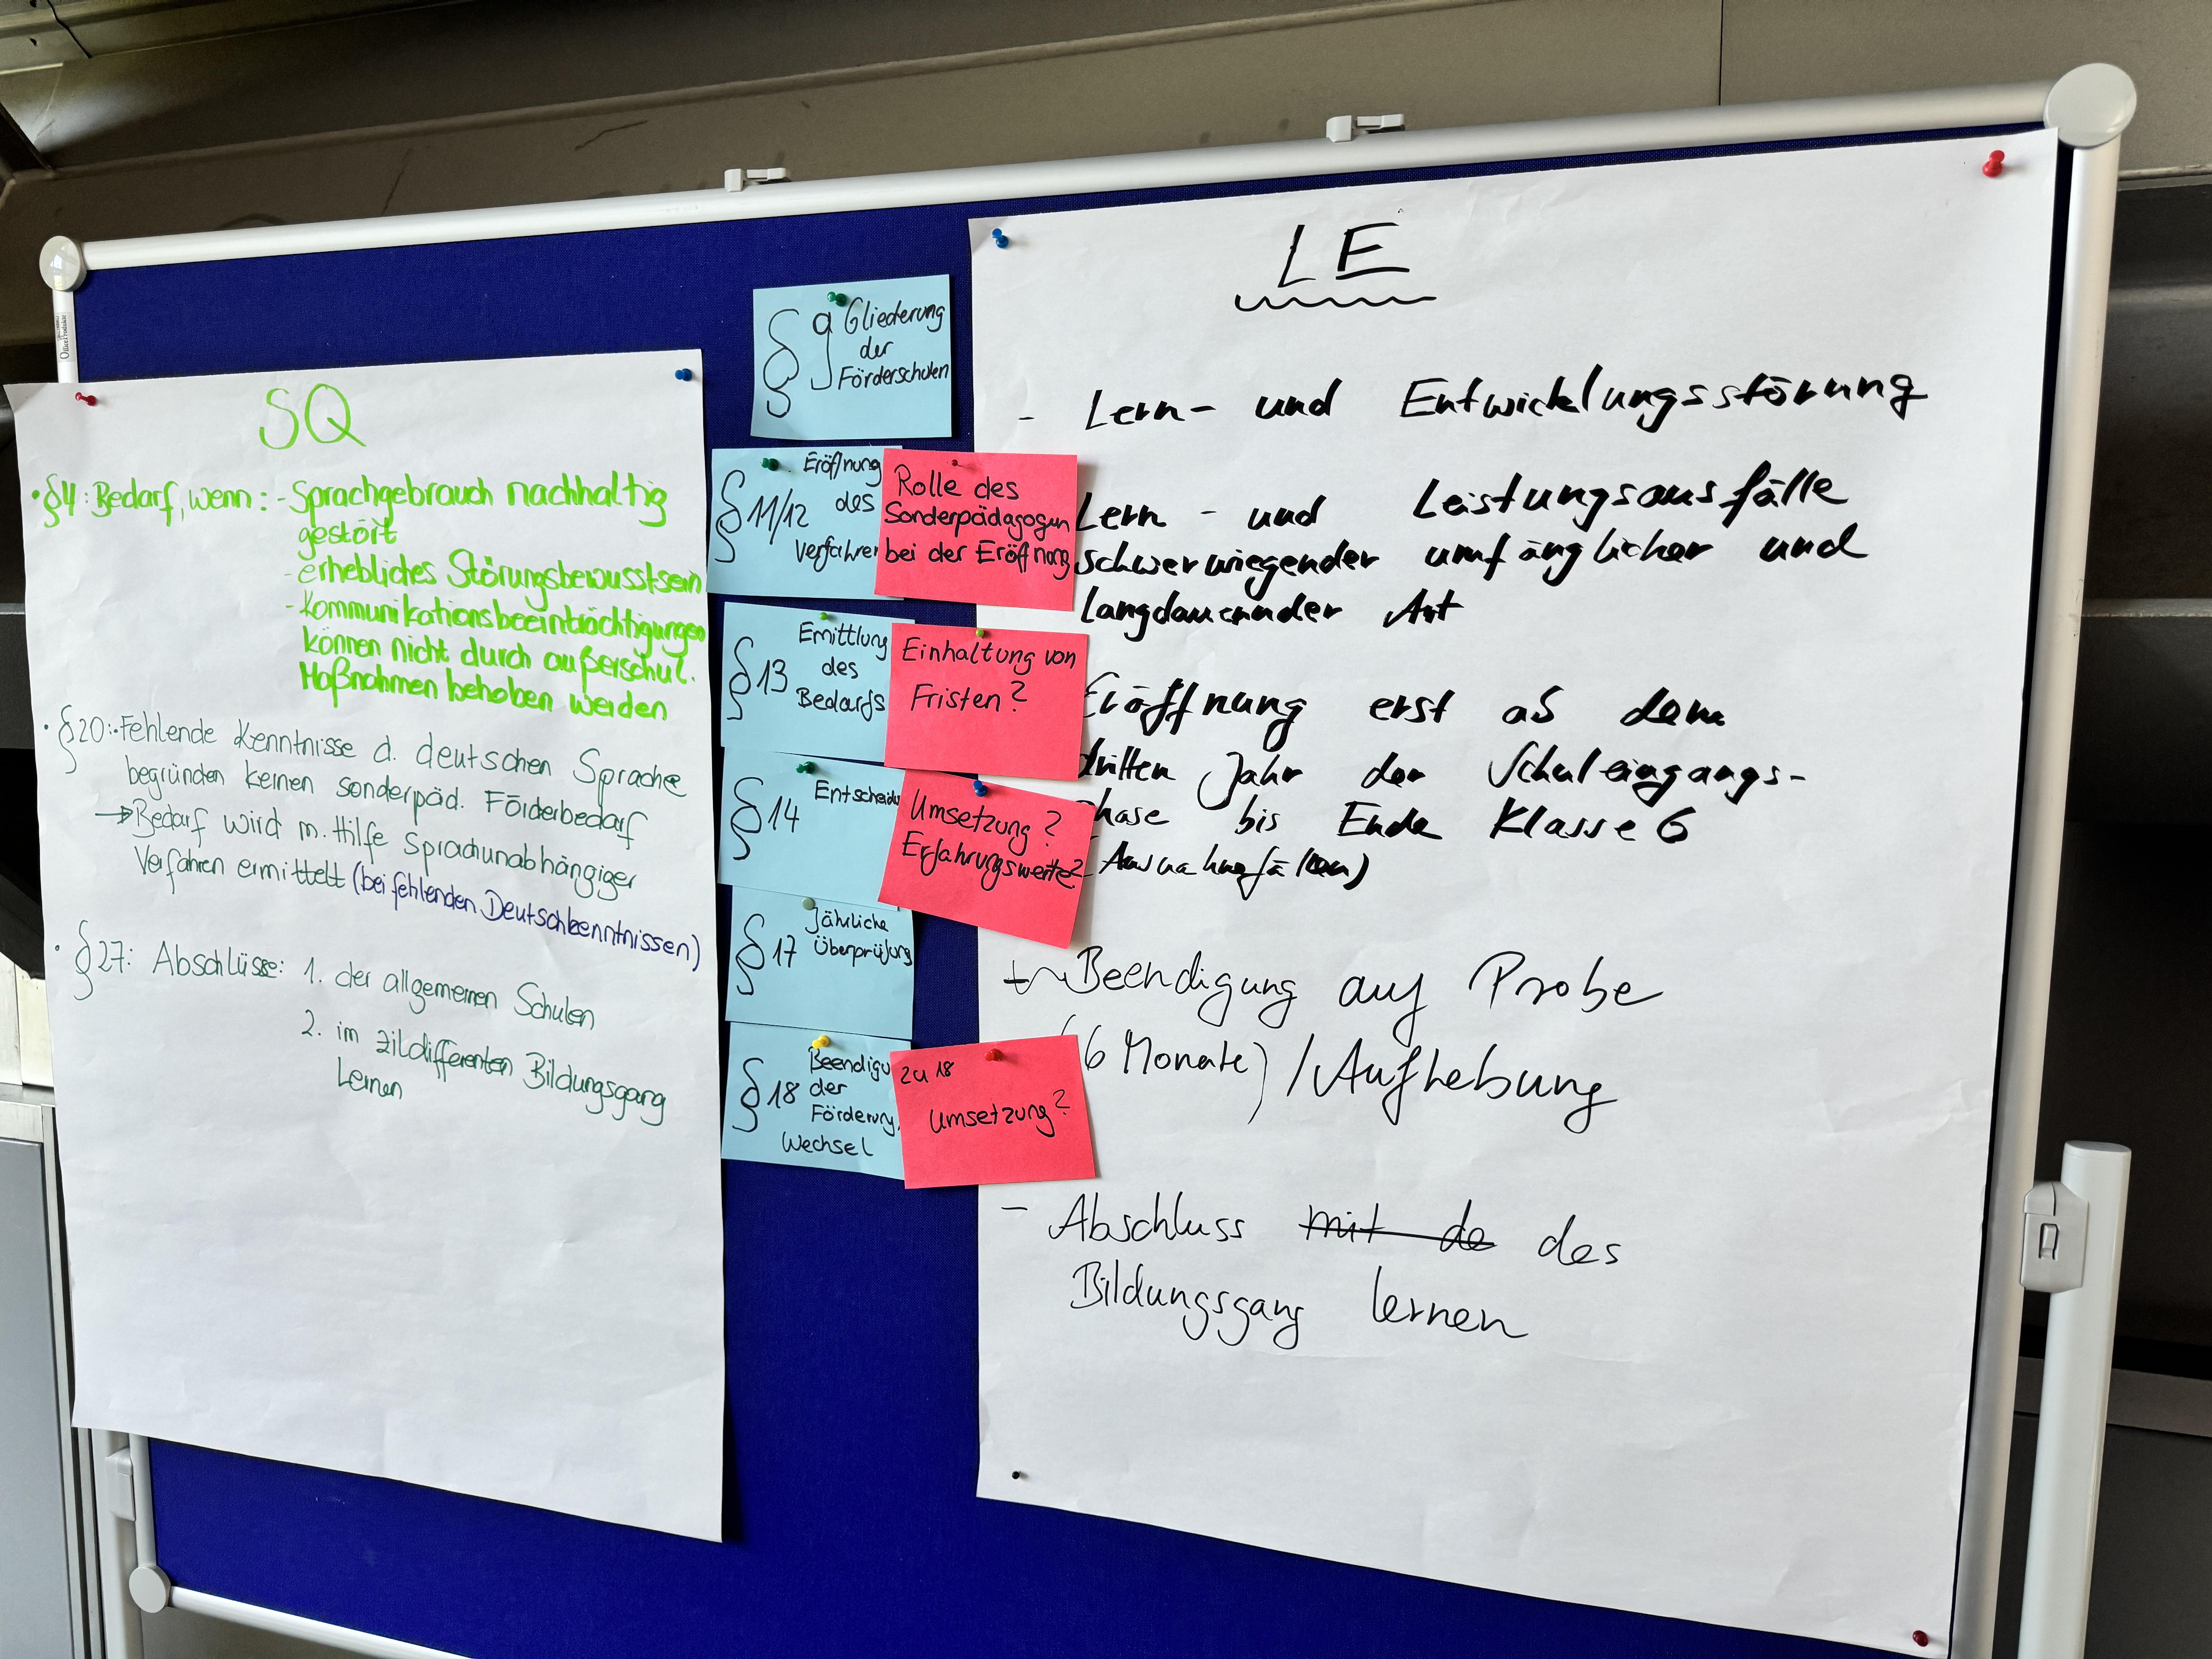 SQ
• §4: Bedarf, wenn: - Sprachgebrauch nachhaltig
gestört
- erhebliches Störungsbewusstsein
- Kommunikationsbeeinträchtigungen
können nicht durch außerschul.
Maßnahmen behoben werden
• §20: Fehlende Kenntnisse d. deutschen Sprache
begründen keinen sonderpäd. Förderbedarf
→ Bedarf wird m. Hilfe Sprachunabhängiger
Verfahren ermittelt (bei fehlenden Deutschkenntnissen)
• §27: Abschlüsse: 1. der allgemeinen Schulen
2. im zildifferenten Bildungsgang
Lernen
§ 9 Gliederung
der
Förderschulen
§ 11/12 Eröffnung
des
Verfahren
Rolle des
Sonderpädagogen
bei der Eröffnung
§ 13 Emittlung
des
Bedarfs
Einhaltung von
Fristen?
§ 14 Entscheidu
Umsetzung?
Erfahrungswerte?
§ 17 Jährliche
Überprüfung
§ 18 Beendigu
der
Förderung,
Wechsel
zu 18
Umsetzung?
LE
- Lern- und Entwicklungsstörung
Lern- und Leistungsausfälle
schwerwiegender umfänglicher und
langdauernder Art
Eröffnung erst ab dem
dritten Jahr der Schuleingangs-
phase bis Ende Klasse 6
Ausnahmefällen)
Beendigung auf Probe
(6 Monate) / Aufhebung
- Abschluss mit de des
Bildungsgang lernen